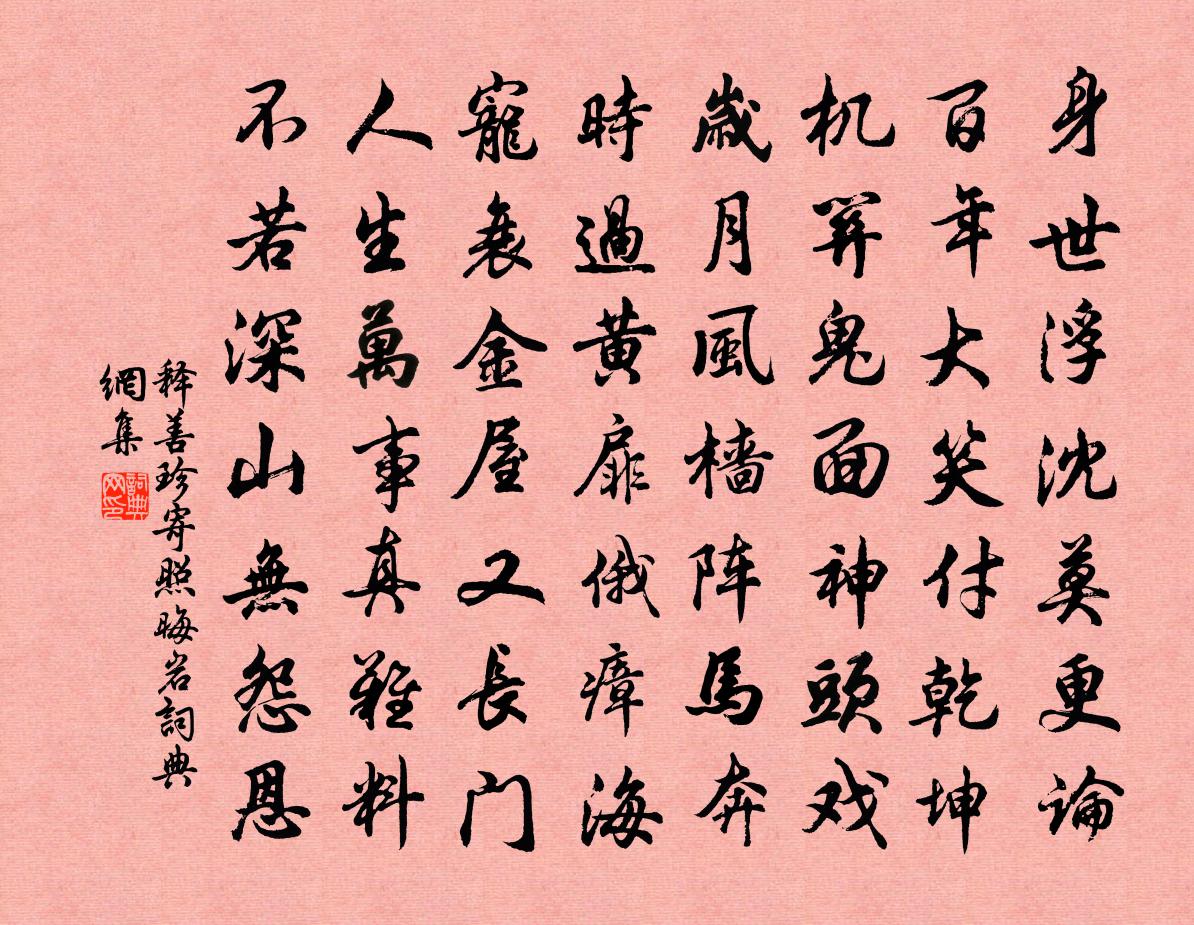 身世浮沈莫更論
百年大笑付乾坤
机弄鬼面神頭戏
歲月風檣阵馬奔
時過黄扉俄瘴海
寵衰金屋又長门
人生萬事真難料
不若深山無怨恩
释善珍寄照晦岩詞典
網集
詞典
网印